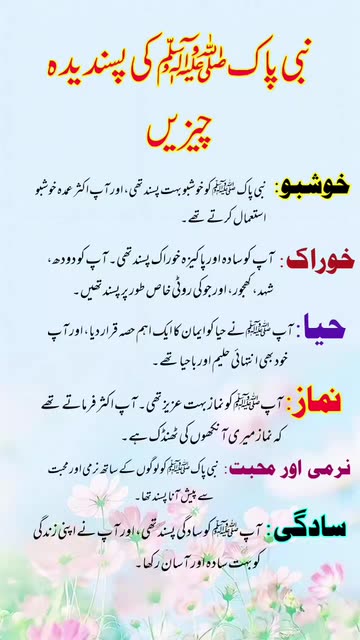 نبی پاک ﷺ کی پسندیدہ
چیزیں
خوشبو: نبی پاک ﷺ کو خوشبو بہت پسند تھی، اور آپ اکثر عمدہ خوشبو
استعمال کرتے تھے۔
خوراک: آپ کو سادہ اور پاکیزہ خوراک پسند تھی۔ آپ کو دودھ،
شہد، کھجور، اور جو کی روٹی خاص طور پر پسند تھیں۔
حیا: آپ ﷺ نے حیا کو ایمان کا ایک اہم حصہ قرار دیا، اور آپ
خود بھی انتہائی حلیم اور باحیا تھے۔
نماز: آپ ﷺ کو نماز بہت عزیز تھی۔ آپ اکثر فرماتے تھے
کہ نماز میری آنکھوں کی ٹھنڈک ہے۔
نرمی اور محبت: نبی پاک ﷺ کو لوگوں کے ساتھ نرمی اور محبت
سے پیش آنا پسند تھا۔
سادگی: آپ ﷺ کو سادگی پسند تھی، اور آپ نے اپنی زندگی
کو بہت سادہ اور آسان رکھا۔